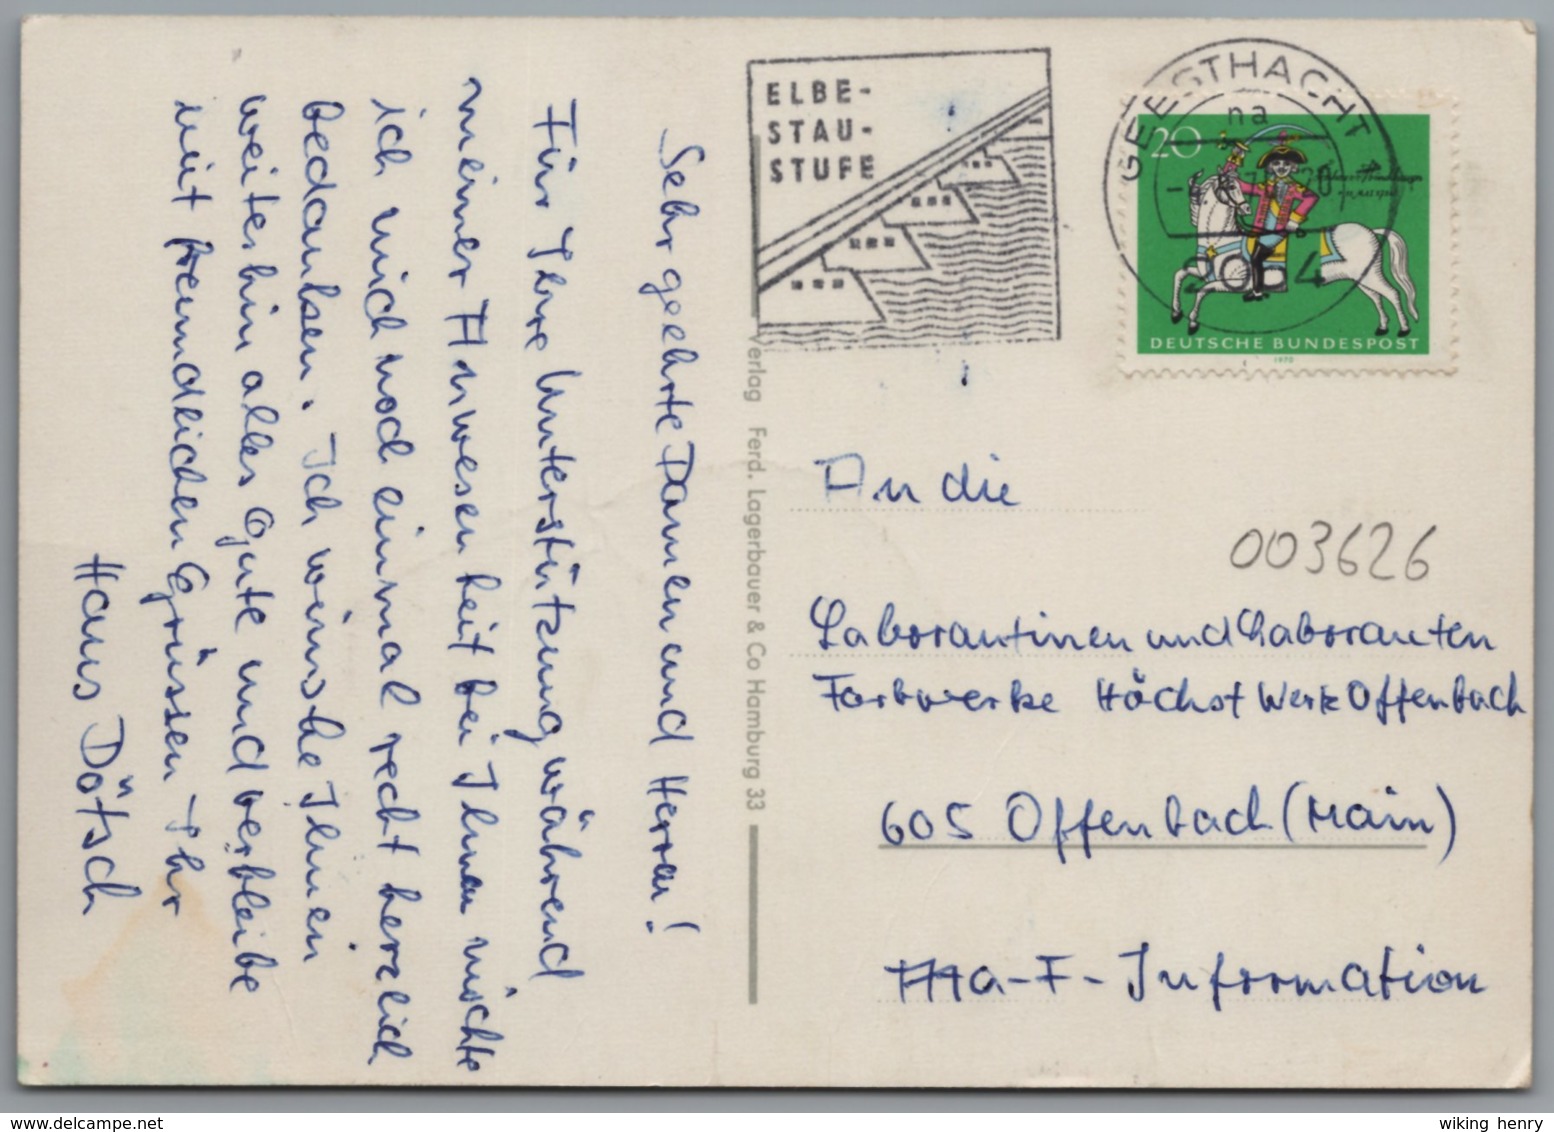 Sehr geehrte Damen und Herren!
Für Ihre Unterstützung während
meiner Anwesenheit bei Ihnen möchte
ich mich noch einmal recht herzlich
bedanken. Ich wünsche Ihnen
weiterhin alles Gute und verbleibe
mit freundlichen Grüssen Ihr
Hans Dötsch
Verlag Ferd. Lagerbauer & Co Hamburg 33
ELBE-
STAU-
STUFE
GEESTHACHT
na
2054
20
DEUTSCHE BUNDESPOST
1970
An die
003626
Laborantinen und Laboranten
Farbwerke Höchst Werk Offenbach
605 Offenbach (Main)
Ma-F-Information
wiking henry